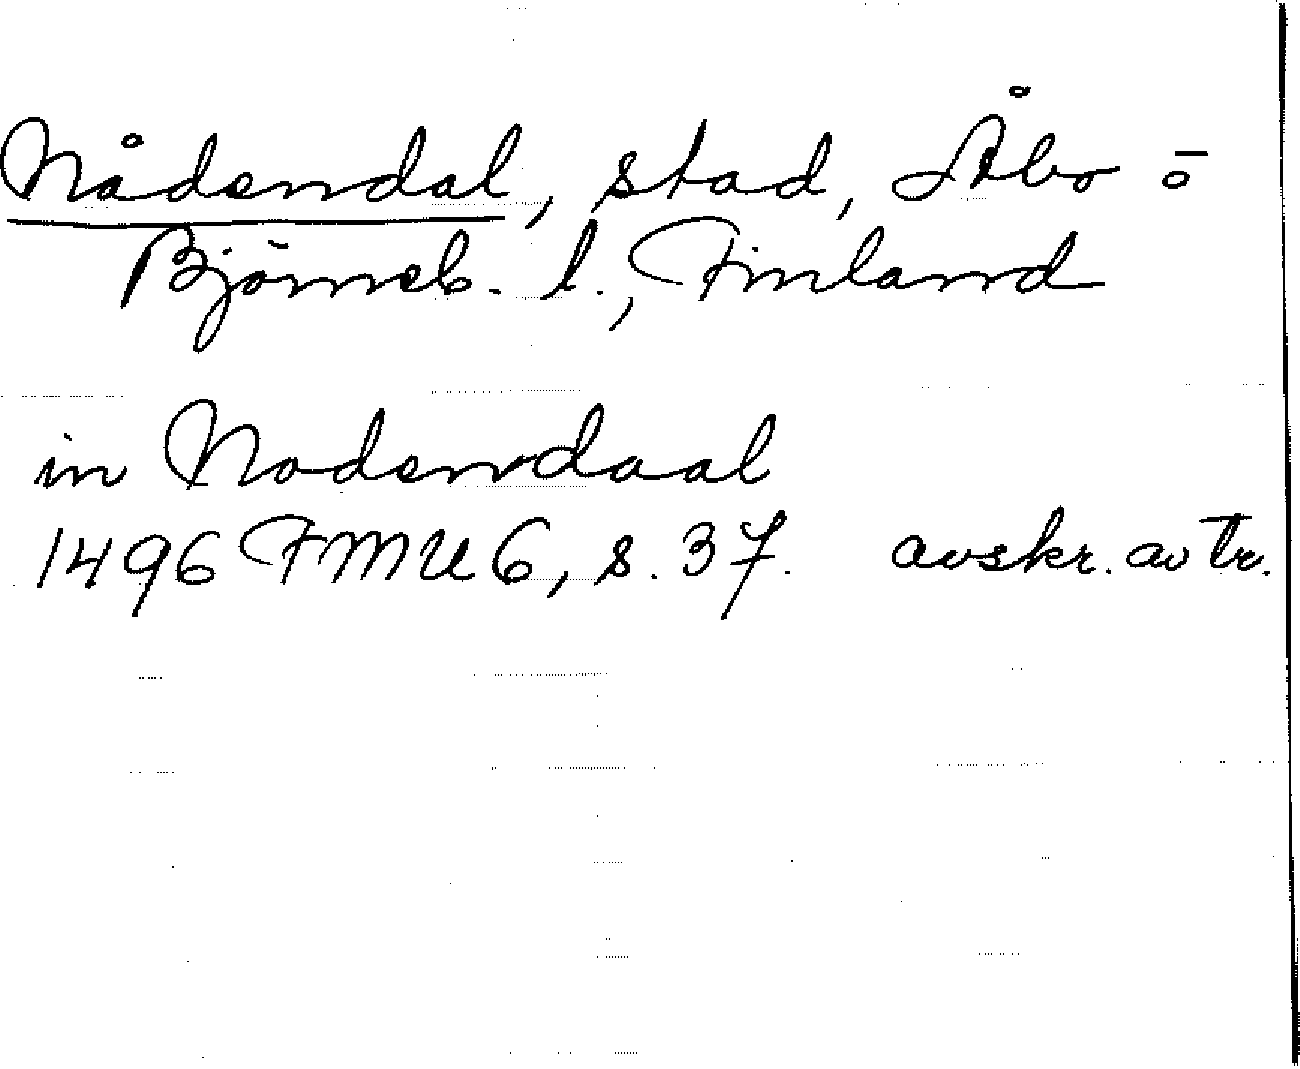 Nådendal, stad, Åbo ō
Björneb. l., Finland
in Nodendaal
1496 FMU 6, s. 37. avskr. av tr.